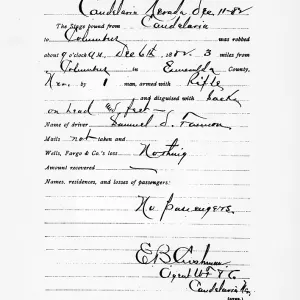 Candelaria Nevada Dec 11-82
The Stage bound from Candelaria
to Columbus was robbed
about 9 o'clock a.m. Dec 6th 1882, 3 miles from
Columbus in Esmeralda County,
Nev. by 1 man, armed with Rifle
and disguised with sacks
on head & feet
Name of driver Samuel S.
Mails not taken and
Wells, Fargo & Co.'s loss Nothing
Amount recovered
Names, residences, and losses of passengers:
No passengers.
E.B. Cushman
Agent W F & Co
Candelaria Nev.